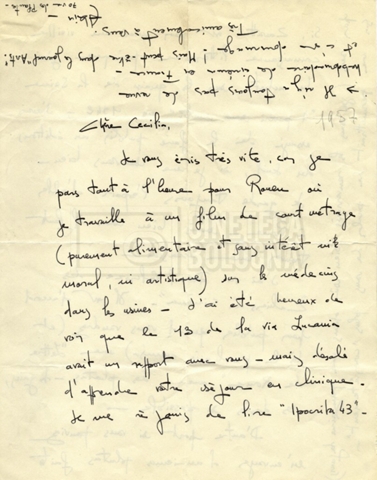 1957
Chère Cecilia,
Je vous écris très vite, car je
pars tout à l'heure pour Rouen où
je travaille à un film de court métrage
(purement alimentaire et sans intérêt ni
moral, ni artistique) sur les médecins
dans les usines - J'ai été heureux de
voir que le 13 de la via Lucania
avait un rapport avec vous - mais désolé
d'apprendre votre séjour en clinique.
Je me réjouis de lire "Ipocrita 43".
→ Il n'y a toujours pas de revue
hebdomadaire de cinéma en France -
et c'est dommage! Mais peut-être dans le grand "Arti"!
Très amicalement à vous.
Alain -
70 rue des Plantes
CINETECA
BOLOGNA